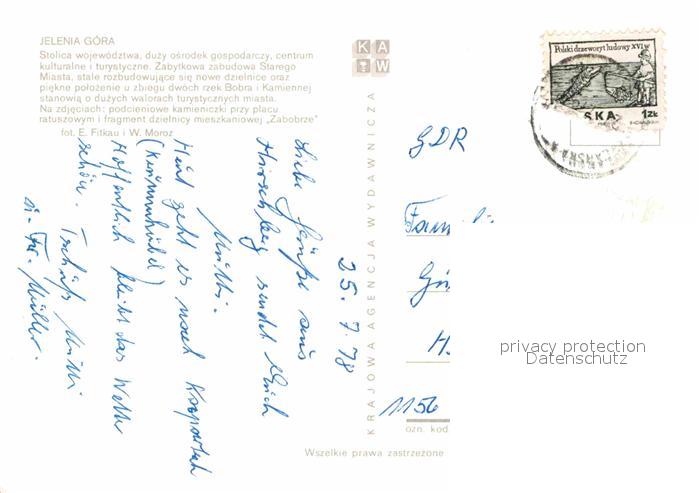 JELENIA GÓRA
Stolica województwa, duży ośrodek gospodarczy, centrum
kulturalne i turystyczne. Zabytkowa zabudowa Starego
Miasta, stale rozbudowujące się nowe dzielnice oraz
piękne położenie u zbiegu dwóch rzek Bobra i Kamiennej
stanowią o dużych walorach turystycznych miasta.
Na zdjęciach: podcieniowe kamieniczki przy placu
ratuszowym i fragment dzielnicy mieszkaniowej „Zabobrze”
fot. E. Fitkau i W. Moroz
KAW
25.7.78
Liebe Grüße aus
Hirschberg sendet Euch
Mutti.
Heut geht es nach Karpacz
(Krummhübel)
Hoffentlich bleibt das Wetter
schön. Tschüß Mutti
Müller.
KRAJOWA AGENCJA WYDAWNICZA
Polski drzeworyt ludowy XVI w
SKA
1ZŁ
GDR
Fam
H.
1156
ozn. kod
Wszelkie prawa zastrzeżone
privacy protection
Datenschutz